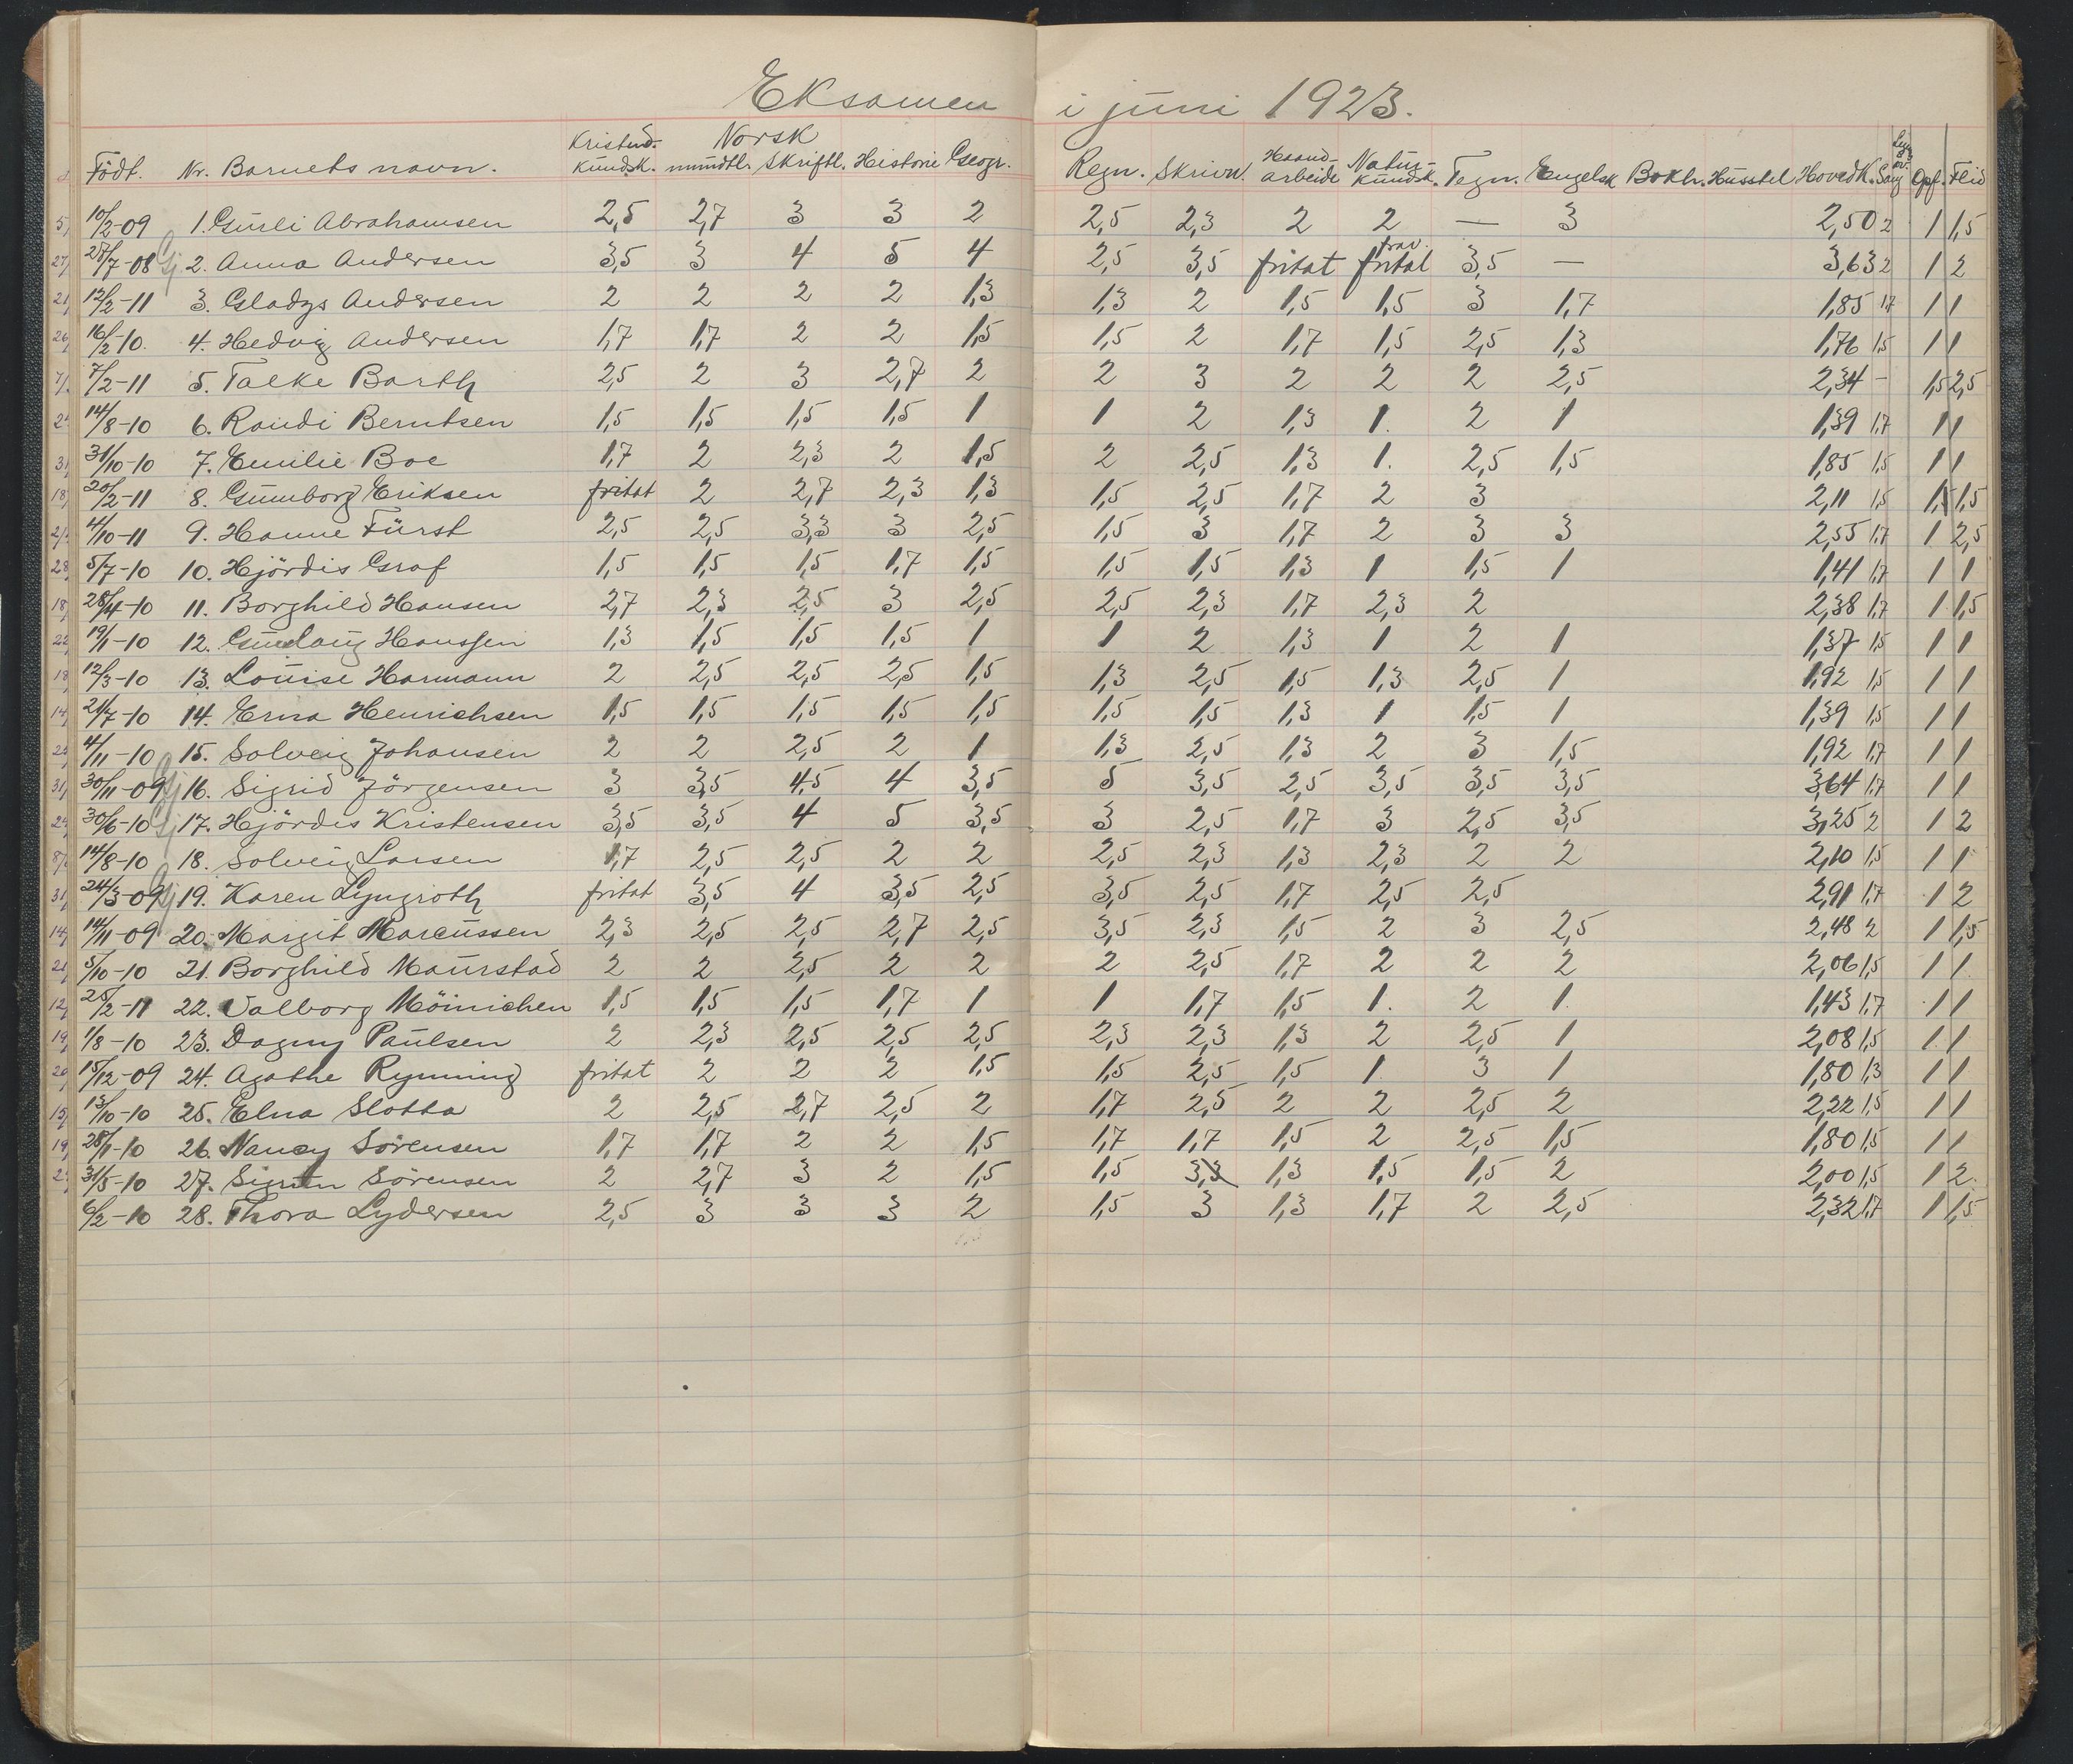 Eksamen i juni 1923.
Födt. Nr. Barnets navn. Kristend. kundsk. Norsk mundtl. Skriftl. Historie Geogr. Regn. Skrivn. Haand-arbeide Natur-kundsk. Tegn. Engelsk Bokh. Husstel Hovedk. Sang Opf. Flid
10/2-09 1. Gurli Abrahamsen 2,5 2,7 3 3 2 2,5 2,3 2 2 — 3 2,50 2 1 1,5
27/7-08 Gj 2. Anna Andersen 3,5 3 4 5 4 2,5 3,5 fritat frav. fritat 3,5 — 3,63 2 1 2
12/2-11 3. Gladys Andersen 2 2 2 2 1,3 1,3 2 1,5 1,5 3 1,7 1,85 1,7 1 1
16/2-10. 4. Hedvig Andersen 1,7 1,7 2 2 1,5 1,5 2 1,7 1,5 2,5 1,3 1,76 1,5 1 1
7/2-11 5. Talke Barth 2,5 2 3 2,7 2 2 3 2 2 2 2,5 2,34 - 1,5 2,5
14/8-10 6. Randi Berntsen 1,5 1,5 1,5 1,5 1 1 2 1,3 1. 2 1 1,39 1,7 1 1
31/10-10 7. Emilie Boe 1,7 2 2,3 2 1,5 2 2,5 1,3 1. 2,5 1,5 1,85 1,5 1 1
20/2-11 8. Gunnborg Eriksen fritat 2 2,7 2,3 1,3 1,5 2,5 1,7 2 3 2,11 1,5 1,5 1,5
4/10-11 9. Hanne Fürst 2,5 2,5 3,3 3 2,5 1,5 3 1,7 2 3 3 2,55 1,7 1 2,5
5/7-10 10. Hjördis Graf 1,5 1,5 1,5 1,7 1,5 1,5 1,5 1,3 1 1,5 1 1,41 1,7 1 1
28/4-10 11. Borghild Hansen 2,7 2,3 2,5 3 2,5 2,5 2,3 1,7 2,3 2 2,38 1,7 1 1,5
19/1-10 12. Gunlaug Hanssen 1,3 1,5 1,5 1,5 1 1 2 1,3 1 2 1 1,37 1,5 1 1
12/3-10 13. Louise Harmann 2 2,5 2,5 2,5 1,5 1,3 2,5 1,5 1,3 2,5 1 1,92 1,5 1 1
21/7-10 14. Erna Henrichsen 1,5 1,5 1,5 1,5 1,5 1,5 1,5 1,3 1 1,5 1 1,39 1,5 1 1
4/11-10 15. Solveig Johansen 2 2 2,5 2 1 1,3 2,5 1,3 2 3 1,5 1,92 1,7 1 1
30/11-09 Gj 16. Sigrid Jörgensen 3 3,5 4,5 4 3,5 5 3,5 2,5 3,5 3,5 3,5 3,64 1,7 1 1
30/6-10 Gj 17. Hjördis Kristensen 3,5 3,5 4 5 3,5 3 2,5 1,7 3 2,5 3,5 3,25 2 1 2
14/8-10 18. Solveig Larsen 1,7 2,5 2,5 2 2 2,5 2,3 1,3 2,3 2 2 2,10 1,5 1 1
24/3-09 Gj 19. Karen Lyngroth fritat 3,5 4 3,5 2,5 3,5 2,5 1,7 2,5 2,5 2,91 1,7 1 2
14/11-09 20. Margit Marcussen 2,3 2,5 2,5 2,7 2,5 3,5 2,3 1,5 2 3 2,5 2,48 2 1 1,5
5/10-10 21. Borghild Maurstad 2 2 2,5 2 2 2 2,5 1,7 2 2 2 2,06 1,5 1 1
25/2-11 22. Valborg Möinichen 1,5 1,5 1,5 1,7 1 1 1,7 1,5 1. 2 1. 1,43 1,7 1 1
1/8-10 23. Dagny Paulsen 2 2,3 2,5 2,5 2,5 2,3 2,3 1,3 2 2,5 1 2,08 1,5 1 1
15/12-09 24. Agathe Rynning fritat 2 2 2 1,5 1,5 2,5 1,5 1. 3 1 1,80 1,3 1 1
13/10-10 25. Elna Slotta 2 2,5 2,7 2,5 2 1,7 2,5 2 2 2,5 2 2,22 1,5 1 1
28/1-10 26. Nancy Sörensen 1,7 1,7 2 2 1,5 1,7 1,7 1,5 2 2,5 1,5 1,80 1,5 1 1
31/5-10 27. Signe Sörensen 2 2,7 3 2 1,5 1,5 3,3 1,3 1,5 1,5 2 2,00 1,5 1 2
6/2-10 28. Thora Lydersen 2,5 3 3 3 2 1,5 3 1,3 1,7 2 2,5 2,32 1,7 1 1,5